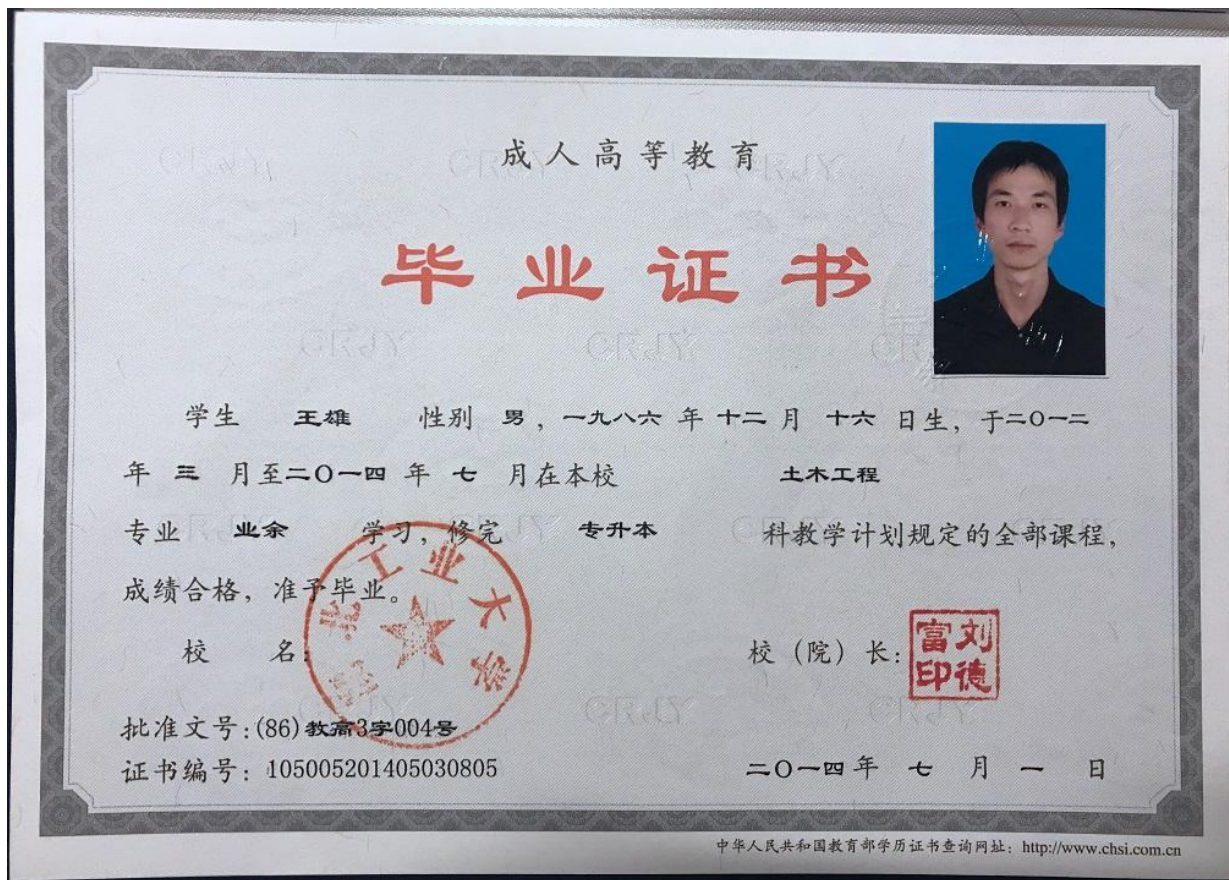 成人高等教育
毕业证书
学生 王雄 性别 男，一九八六 年 十二 月 十六 日生，于二〇一二
年 三 月至二〇一四 年 七 月在本校 土木工程
专业 业余 学习，修完 专升本 科教学计划规定的全部课程，
成绩合格，准予毕业。
校 名： 校（院）长：
湖北工业大学
刘德富印
批准文号：(86)教高3字004号
证书编号：105005201405030805
二〇一四年 七 月 一 日
中华人民共和国教育部学历证书查询网址：http://www.chsi.com.cn
CRJY